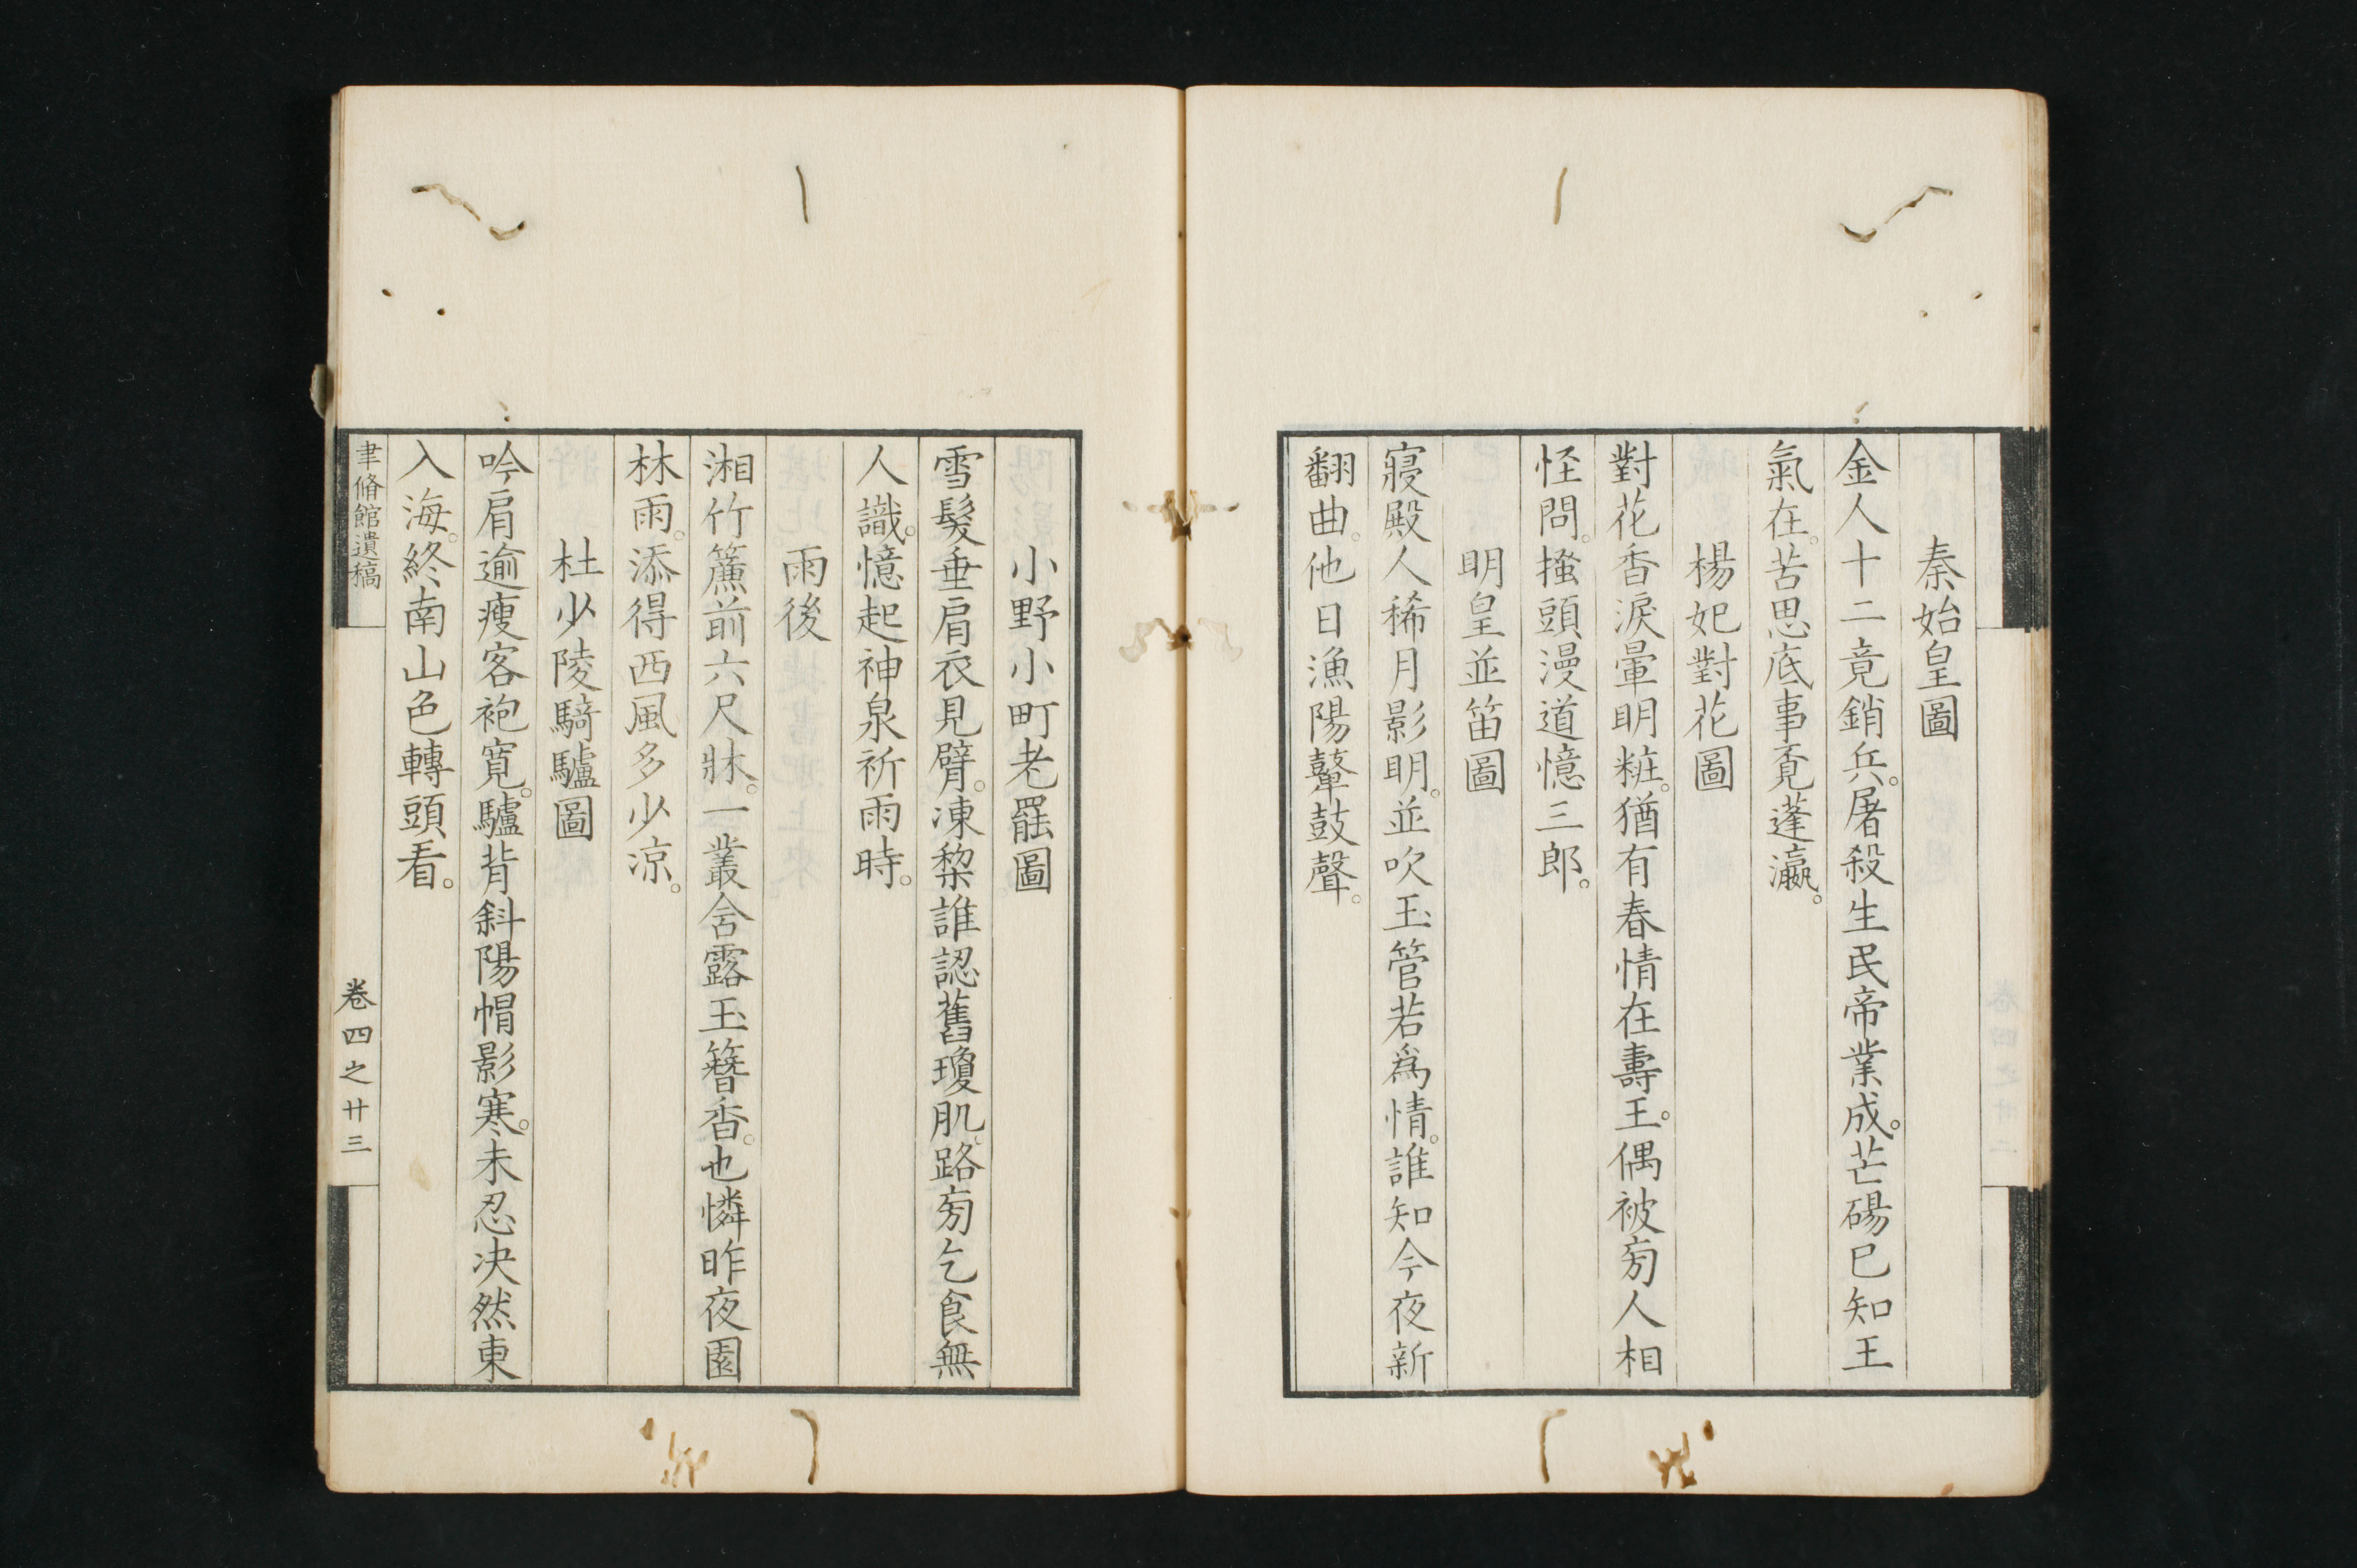 秦始皇圖
金人十二竟銷兵。屠殺生民帝業成。芒碭已知王
氣在。苦思底事覔蓬瀛。
楊妃對花圖
對花香淚暈明粧。猶有春情在壽王。偶被㫄人相
怪問。搔頭漫道憶三郎。
明皇並笛圖
寢殿人稀月影明。並吹玉管若爲情。誰知今夜新
翻曲。他日漁陽鼙鼓聲。
小野小町老罷圖
雪髮垂肩衣見臂。凍棃誰認舊瓊肌。路㫄乞食無
人識。憶起神泉祈雨時。
雨後
湘竹簾前六尺牀。一叢含露玉簪香。也憐昨夜園
林雨。添得西風多少凉。
杜少陵騎驢圖
吟肩逾瘦客袍寬。驢背斜陽帽影寒。未忍决然東
入海。終南山色轉頭看。
聿脩館遺稿
卷四之廿三